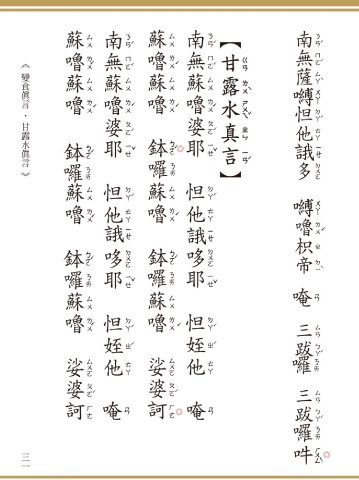 南無薩嚩怛他誐多　嚩嚕枳帝　唵　三跋囉　三跋囉吽
【甘露水真言】
南無蘇嚕婆耶　怛他誐哆耶　怛姪他　唵
蘇嚕蘇嚕　鉢囉蘇嚕　鉢囉蘇嚕　娑婆訶
南無蘇嚕婆耶　怛他誐哆耶　怛姪他　唵
蘇嚕蘇嚕　鉢囉蘇嚕　鉢囉蘇嚕　娑婆訶
《變食真言・甘露水真言》
三一